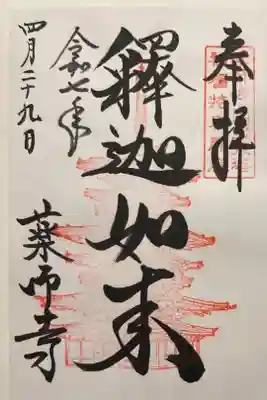 奉拝
釋迦如来
令和七年
四月二十九日
薬師寺